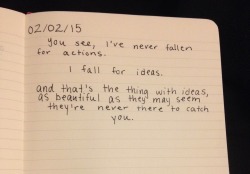 02/02/15
you see, I've never fallen
for actions.
I fall for ideas.
and that's the thing with ideas,
as beautiful as they may seem
they're never there to catch
you.